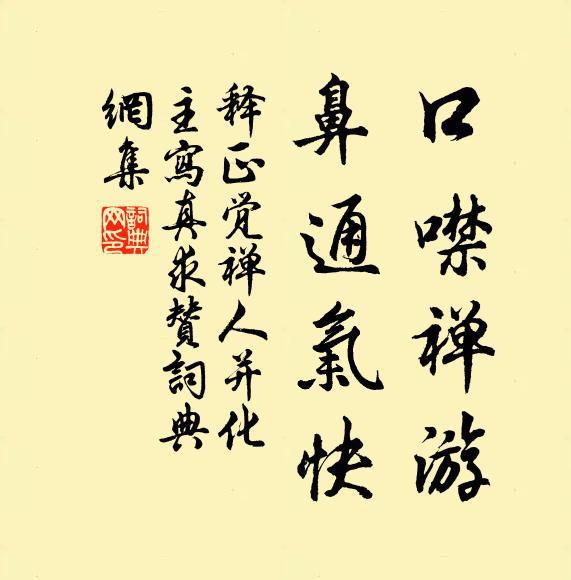 口噤禅游
鼻通氣快
释正觉禅人并化
主寫真求贊詞典
網集
詞典網印